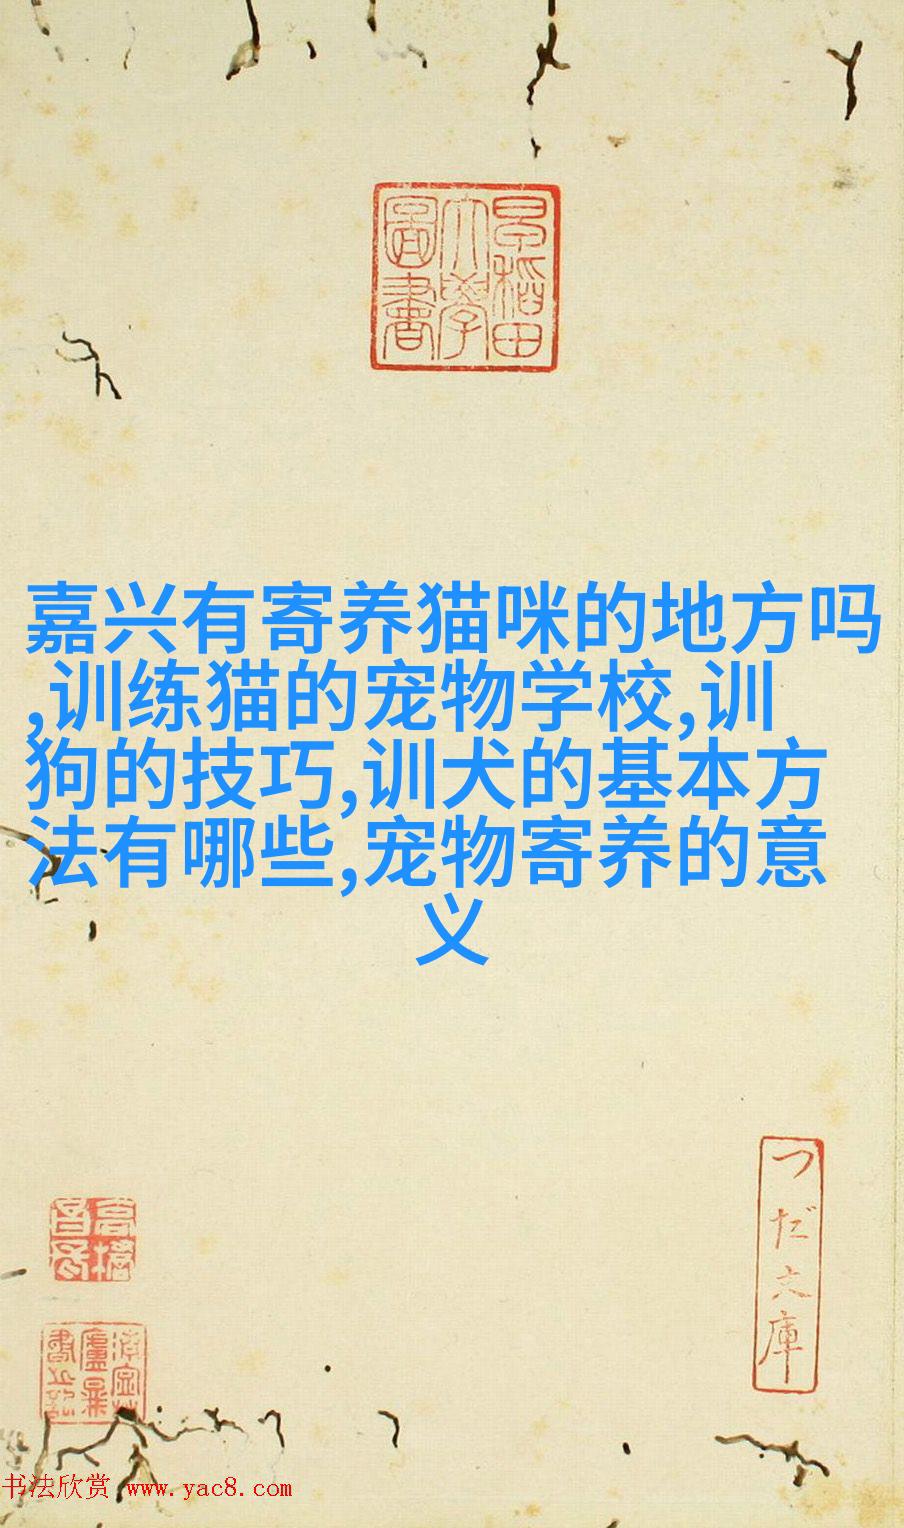 早稻田
大學
圖書
嘉兴有寄养猫咪的地方吗
,训练猫的宠物学校,训
狗的技巧,训犬的基本方
法有哪些,宠物寄养的意
义
つだ文庫
书法欣赏 www.yac8.com